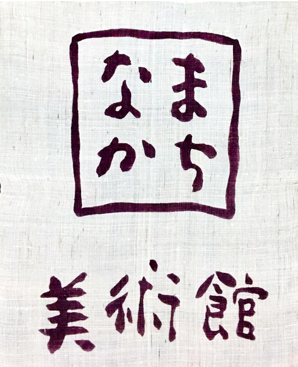 まち
なか
美術館